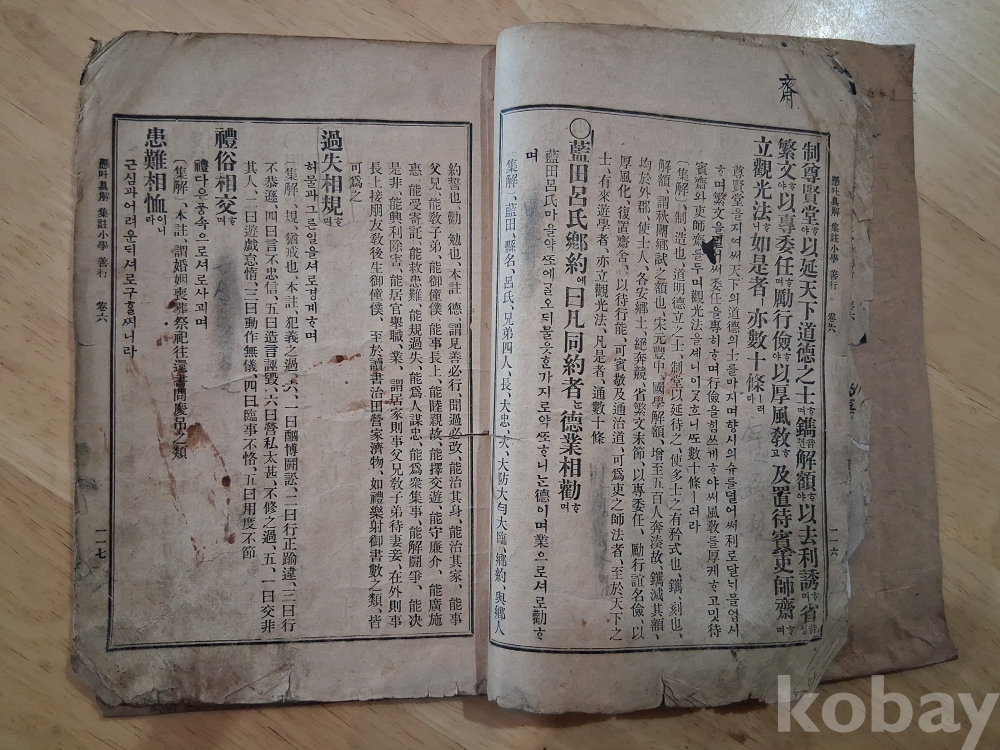 齋
制尊賢堂ᄒᆞ야以延天下道德之士ᄒᆞ며鐫解額ᄒᆞ야以去利誘ᄒᆞ며省
繁文ᄒᆞ야以專委任ᄒᆞ며勵行儉ᄒᆞ야以厚風敎ᄒᆞ고及置待賓吏師齋ᄒᆞ며
立觀光法ᄒᆞ니如是者ㅣ亦數十條ㅣ러라
尊賢堂을지여써天下의道德의士를마지며향시의슈를덜어써利로달닉믈업시
ᄒᆞ며繁文을덜어써委任을專히ᄒᆞ며行儉을힘쓰게ᄒᆞ야써風敎를厚케ᄒᆞ고밋待
賓齋와吏師齋를두며觀光法을셰니이ᄀᆞᆺᄒᆞᆫ니ᄯᅩ數十條ㅣ러라
〔集解〕、制、造也、道明德立之士、制堂以延待之、使多士之有矜式也、鐫、刻也、
解額、謂秋闈鄕試之額也、宋元豐中、國學解額、增至五百人奔湊故、鐫減其額、
均於外郡、使士人、各安鄕土、絕奔競、省繁文末節、以專委任、勵行誼名儉、以
厚風化、復置齋舍、以待行能、可賓敬及通治道、可爲吏之師法者、至於天下之
士、有來遊學者、亦立觀光法、凡是者、通數十條
○藍田呂氏鄕約에曰凡同約者ᄂᆞᆫ德業相勸ᄒᆞ며
藍田呂氏마을약ᄯᅩ에글오ᄃᆡ믈읏ᄒᆞᆫ가지로약ᄯᅩᄒᆞ니ᄂᆞᆫ德이며業으로셔로勸ᄒᆞ
며
〔集解〕、藍田、縣名、呂氏、兄弟四人、長、大忠、次、大防大勻大臨、鄕約、與鄕人
懸吐具解 集註小學 善行 卷六 一一六
約誓也、勸、勉也、本註、德、謂見善必行、聞過必改、能治其身、能治其家、能事
父兄、能敎子弟、能御僮僕、能事長上、能睦親故、能擇交遊、能守廉介、能廣施
惠、能受寄託、能救患難、能規過失、能爲人謀忠、能爲衆集事、能解鬪爭、能决
是非、能興利除害、能居官舉職、業、謂居家則事父兄敎子弟待妻妾、在外則事
長上接朋友敎後生御僮僕、至於讀書治田營家濟物、如禮樂射御書數之類、皆
可爲之
過失相規ᄒᆞ며
허물과그른일을셔로경계ᄒᆞ며
〔集解〕、規、猶戒也、本註、犯義之過、六、一曰酗博鬪訟、二曰行正踰違、三曰行
不恭遜、四曰言不忠信、五曰造言誣毁、六曰營私太甚、不修之過、五、一曰交非
其人、二曰遊戲怠惰、三曰動作無儀、四曰臨事不恪、五曰用度不節
禮俗相交ᄒᆞ며
禮다온풍속으로셔로사괴며
〔集解〕、本註、謂婚姻喪葬祭祀往還書問慶弔之類
患難相恤이니라
근심과어려운ᄃᆡ셔로구ᄒᆞᆯ찌니라
懸吐具解 集註小學 善行 卷六 一一七
kobay